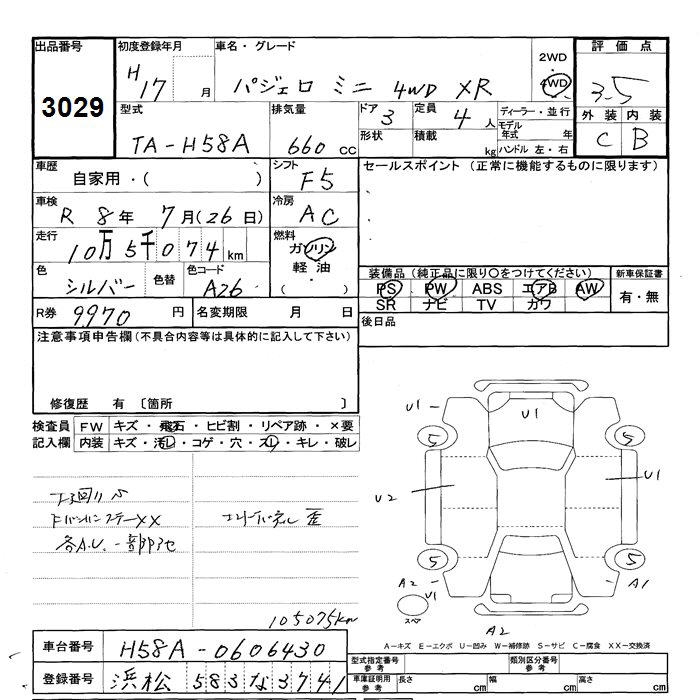 出品番号 初度登録年月 車名・グレード 2WD・4WD 評価点
3029 H17 月 パジェロ ミニ 4WD XR 3.5
型式 排気量 ドア 定員 ディーラー・並行 外装 内装
TA-H58A 660 cc 3 4人 モデル年式 年 C B
形状 積載 kg ハンドル 左・右
車歴 シフト セールスポイント (正常に機能するものに限ります)
自家用・( ) F5
車検 冷房
R 8年 7月(26日) AC
走行 燃料
10万5千074km ガソリン
軽油
・( )
色 色替 色コード 装備品 (純正品に限り○をつけてください) 新車保証書
シルバー A26 PS PW ABS エアB AW 有・無
SR ナビ TV カワ
R券 9970 円 名変期限 月 日 後日品
注意事項申告欄 (不具合内容等は具体的に記入して下さい)
修復歴 有 〔箇所 〕
検査員 FW キズ・飛石・ヒビ割・リペア跡・×要
記入欄 内装 キズ・汚し・コゲ・穴・スレ・キレ・破レ
下廻りS
各A.U.一部
歪
105075km
U1 U1
5 5
U2 U1
5 5
A2 U1 A1
スペア
A2
A-キズ E-エクボ U-凹み W-補修跡 S-サビ C-腐食 XX-交換済
車台番号 H58A-0606430
登録番号 浜松 583 な 3741
型式指定番号 参考 類別区分番号 参考
車庫証明用 参考 長さ cm 幅 cm 高さ cm